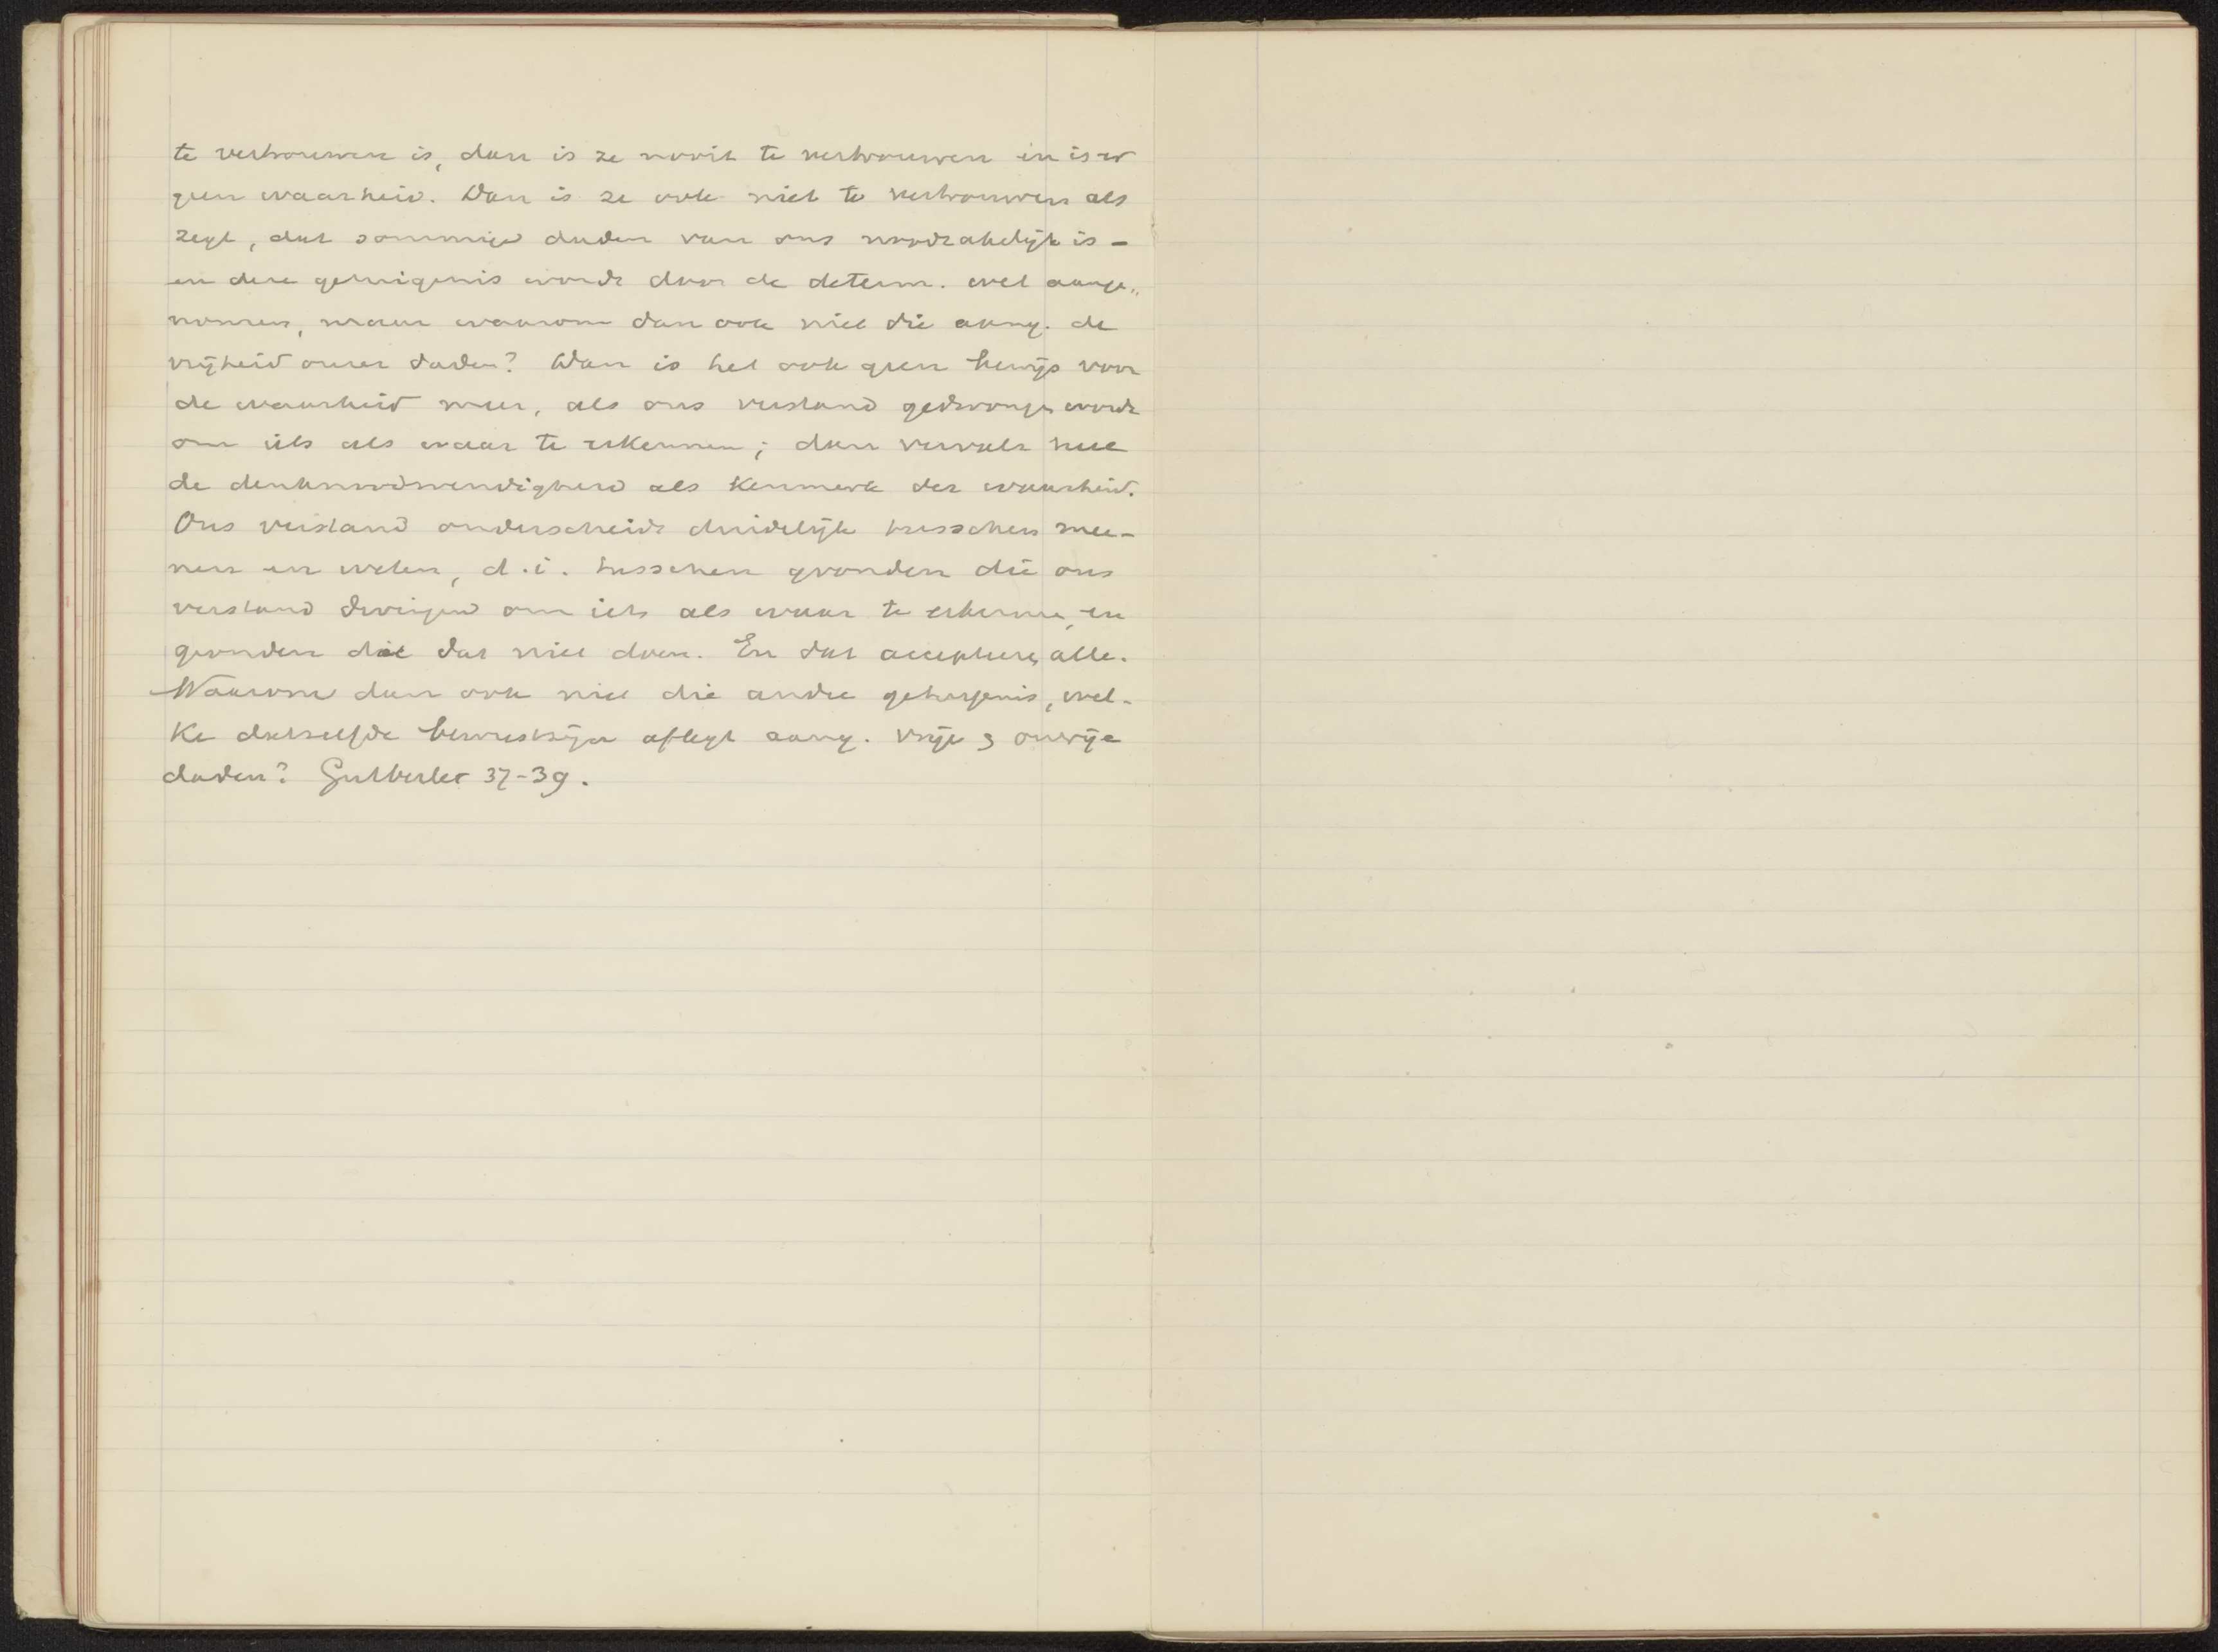 te vertrouwen is, dan is ze nooit te vertrouwen en is er
geen waarheid. Dan is ze ook niet te vertrouwen als
zegt, dat sommige daden van ons noodzakelijk is –
en deze getuigenis wordt door de determ. wel aange„
nomen, maar waarom dan ook niet die aang. de
vrijheid onzer daden? Dan is het ook geen bewijs voor
de waarheid meer, als ons verstand gedwongen wordt
om iets als waar te erkennen; dan vervalt heel
de denknoodwendigheid als kenmerk der waarheid.
Ons verstand onderscheidt duidelijk tusschen mee-
nen en weten, d.i. tusschen gronden die ons
verstand dwingen om iets als waar te erkennen, en
gronden die dat niet doen. En dat accepteren alle.
Waarom dan ook niet die andre getuigenis, wel-
ke datzelfde bewustzijn aflegt aang. vrije & onvrije
daden? Gutberlet 37-39.